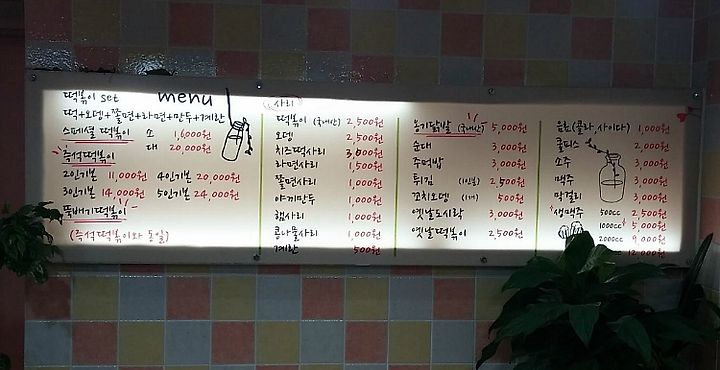 떡볶이 set
menu
떡+오뎅+쫄면+라면+만두+계란
스페셜 떡볶이 소 16,000원
대 20,000원
즉석떡볶이
2인기본 11,000원 4인기본 20,000원
3인기본 14,000원 5인기본 24,000원
뚝배기떡볶이
(즉석 떡볶이와 동일)
사리
떡볶이 (국내산) 2,500원
오뎅 2,500원
치즈떡사리 3,000원
라면사리 1,500원
쫄면사리 1,000원
야끼만두 1,000원
햄사리 1,000원
콩나물사리 1,000원
계란 500원
옹기닭발 (국내산) 5,000원
순대 3,000원
주먹밥 3,000원
튀김 (1인분) 2,500원
꼬치오뎅 (1개) 500원
옛날도시락 3,000원
옛날떡볶이 2,500원
음료(콜라,사이다) 1,000원
쿨피스
소주
맥주
막걸리
생맥주 500cc 2,500원
1000cc 5,000원
2000cc 9,000원
12,000원